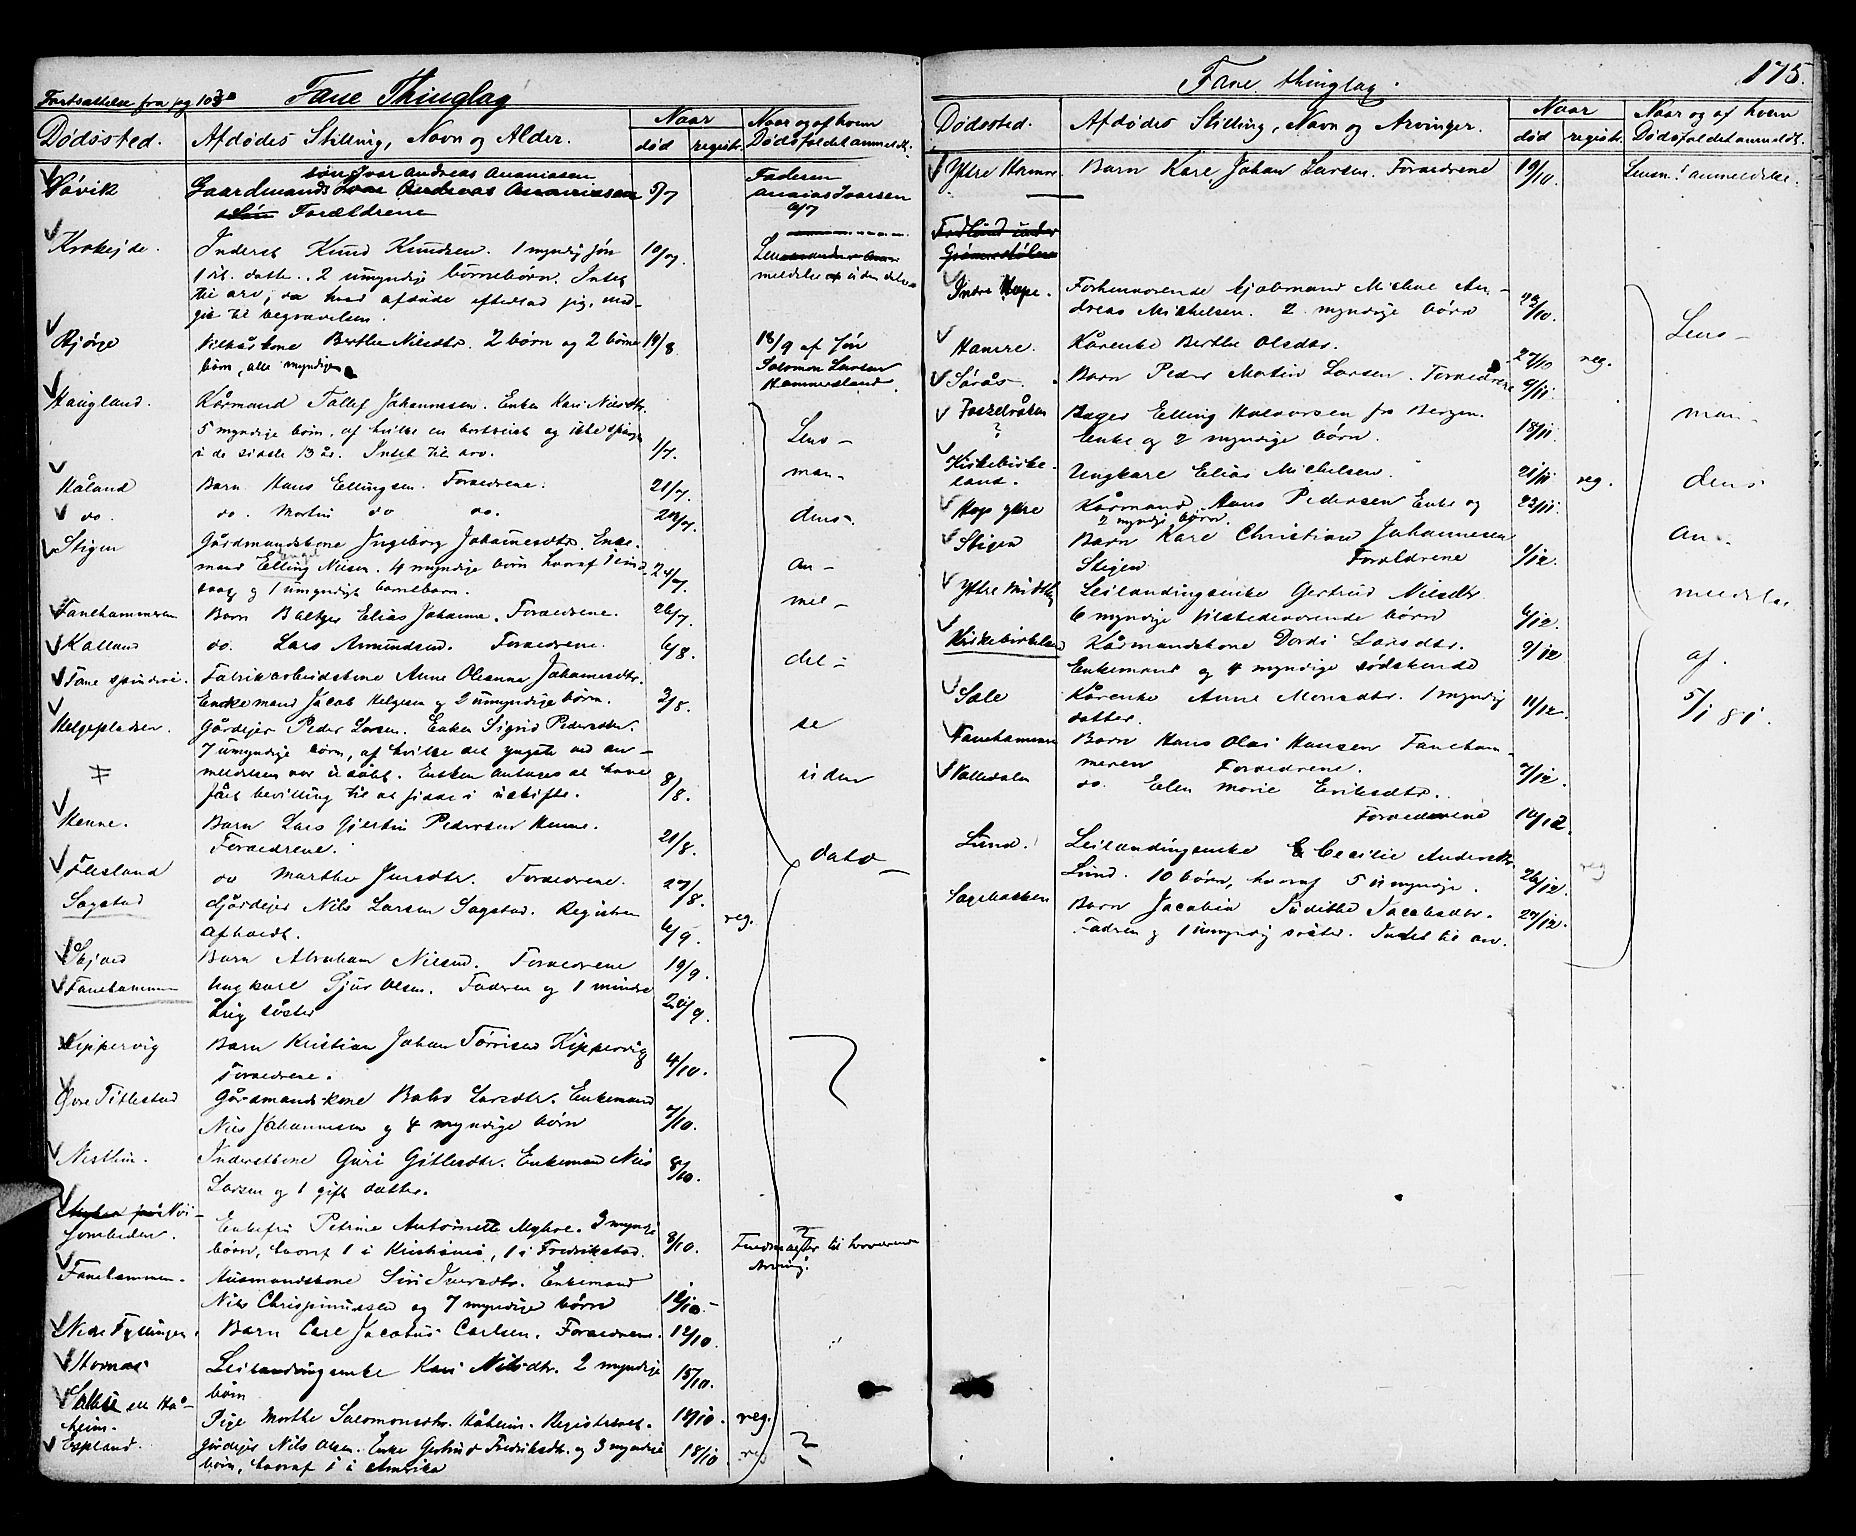 Fortsættelse fra pg 103b
Fane Thinglag
Dødssted. Afdødes Stilling, Navn og Alder. Naar død registr. Naar og af hvem Dødsfaldet anmeldt.
søn Ivar Andreas Ananiassen
Søvik Gaardmands Ivar Andreas Ananiassen 5/7 Faderen
Søn Forældrene Ananias Ivarsen
6/7
Krokejde. Inderst Knud Knudsen. 1 myndig søn 10/7. Lensmandens An-
1 do. datter. 2 umyndige børnebørn. Intet meldelse uden dato
til arv, da hvad afdøde efterlod sig, med-
gik til begravelsen.
Bjørge Vilkårskone Berthe Nilsdtr. 2 børn og 2 børne 14/8 18/9 af søn
børn, alle myndige Salomon Larsen
Hammersland.
Haugland. Kårmand Tollef Johannessen. Enken Kari Nilsdtr.
5 myndige børn, af hvilke en bortreist og ikke spurgt Lens-
i de sidste 13 år. Intet til arv. 1/7.
Håland Barn Hans Ellingsen. Forældrene. 21/7. man-
do. do. Martin do do. 24/7. dens-
Stigen Gårdmandskone Ingeborg Johannesdtr. Enke-
mand Elling Nilsen. 4 myndige børn hvoraf 1 sind- 24/7 an-
svag og 1 umyndigt barnebarn.
Fanehammeren Barn Baltzer Elias Johanne. Forældrene. 26/7. mel-
Kalland do. Lars Amundsen. Forældrene. 6/8.
Fane spinderi. Fabrikarbeiderske Anne Oleanna Johannesdtr. del-
Enkemand Jacob Helgesen og 2 umyndige børn. 3/8.
Helgepladsen. Gårdejer Peder Larsen. Enken Sigrid Pedersdtr. se
7 umyndige børn, af hvilke det yngste ved an-
meldelsen var udøbt. Enken antages at have uden
fået bevilling til at sidde i uskifte. 8/8.
Henne. Barn Lars Gjertin Pedersen Henne.
Forældrene. 21/8. dato
Flesland do Marthe Jensdtr. Forældrene. 27/8.
Sagstad Gårdejer Nils Larsen Sagstad. Registren
afholdt. 6/9. reg.
Skjold Barn Abraham Nilsen. Forældrene 19/9.
Fanehammeren Ungkarl Sjur Olsen. Fadren og 1 mindre
årig søster 20/9.
Kippervig Barn Kristian Johan Tørrisen Kippervig
Forældrene. 4/10.
Øvre Titlestad Gårdmandskone Brita Larsdtr. Enkemand
Nils Johannesen og 4 myndige børn 7/10.
Nestun. Inderstkone Guri Gitlesdtr. Enkemand Nils 8/10.
Larsen og 1 gift datter.
Enkefru Petrine Antoinette Myhre. 3 myndige
børn, hvoraf 1 i Kristiania, 1 i Fredrikstad. 8/10. Fuldmagter til hverandre
Arving.
Fanehammeren. Husmandskone Siri Iversdtr. Enkemand
Nils Chrispinussen og 7 myndige børn 12/10.
Nedre Fyllingen. Barn Carl Jacobus Carlsen. Forældrene. 12/10.
Stornæs Leilændingenke Kari Nilsdtr. 2 myndige 15/10.
børn
Pige Marthe Salomonsdtr. Håheim. Registreret. 14/10 reg.
Espland. Gårdejer Nils Olsen. Enke Gertrud Fredriksdtr. og 3 myndige 18/10 reg
børn, hvoraf 1 i Amerika
175.
Fane thinglag.
Dødssted. Afdødes Stilling, Navn og Arvinger. Naar død registr. Naar og af hvem Dødsfaldet anmeldt.
Ytre Hamre. Barn Karl Johan Larsen. Forældrene 19/10. Lensm. anmeldelse.
Indre Hope. Forhenværende Gjøbmand Michael An-
dreas Michelsen. 2 myndige børn 23/10.
Hamre. Kårenke Berthe Olsdtr. 27/10 reg. Lens-
Sørås. Barn Peder Martin Larsen. Forældrene 4/11.
Bager Elling Halvorsen fra Bergen. man-
? Enke og 2 myndige børn. 18/11
Kirkebirke-
land. Ungkarl Elias Michelsen. 21/11 reg. dens
Hop ytre Kårmand Hans Pedersen Enke og 23/11.
2 myndige børn.
Stigen Barn Karl Christian Johannesen an-
Stigen Forældrene 1/12.
Ytre Midttun Leilændingenke Gertrud Nilsdtr. meldelse
6 myndige tilstedeværende børn 6/12.
Kirkebirkeland Kårmandskone Dordi Larsdtr. 9/12
Enkemand og 4 myndige sødskende af.
Sæle Kårenke Anne Monsdtr. 1 myndig 11/12. 5/1 81.
datter.
Fanehammeren Barn Hans Olai Hansen Faneham-
meren Forældrene. 7/12.
Kalledalen do. Elen Marie Eriksdtr.
Forældrene 14/12.
Lund. Leilændingenke Cecilie Andersdtr.
Lund. 10 børn, hvoraf 5 umyndige. 26/12. reg
Sagebakken Barn Jacobin Juditha Jacobsdtr.
Fadren og 1 umyndig søster. Intet til arv. 27/12.